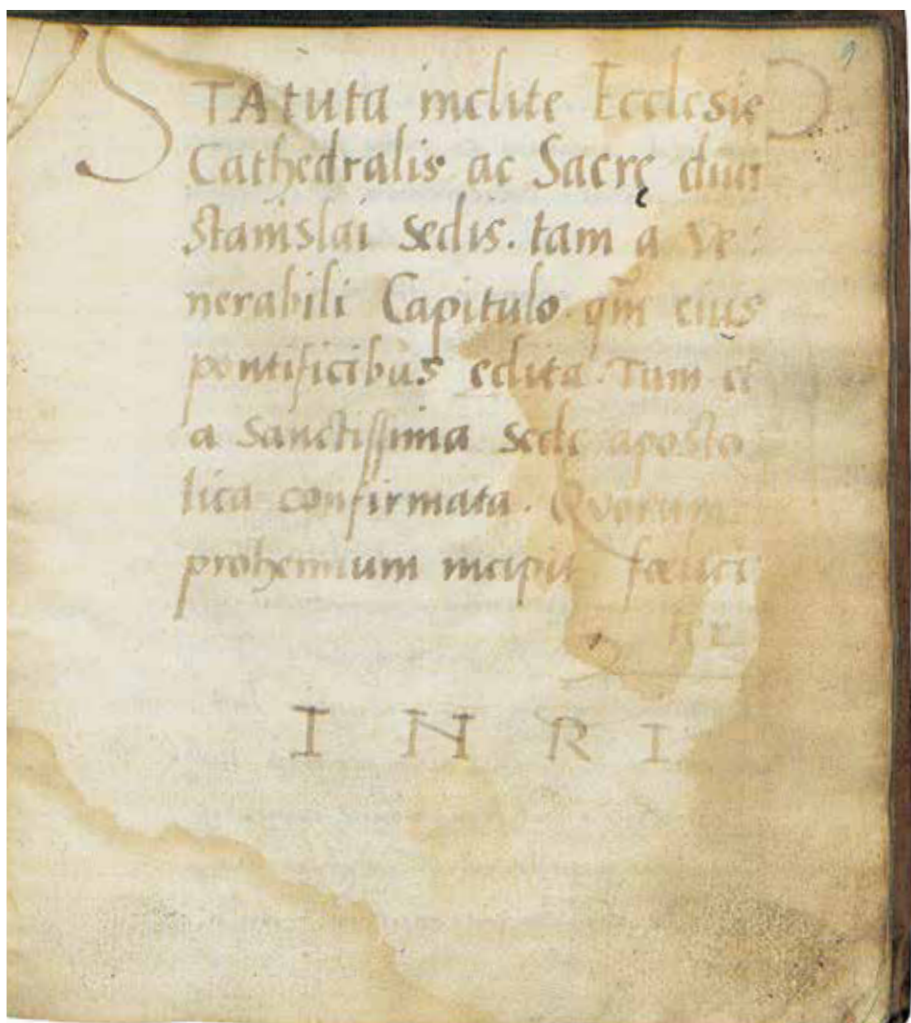 9
STAtuta inclite Ecclesie
Cathedralis ac Sacrę diui
Stanislai Sedis. tam a Ve:
nerabili Capitulo. qm̃ eius
pontificibus edita. Tum
a Sanctissima Sede aposto
lica confirmata. Quorum
prohemium incipit fœlici
ter
I N R I